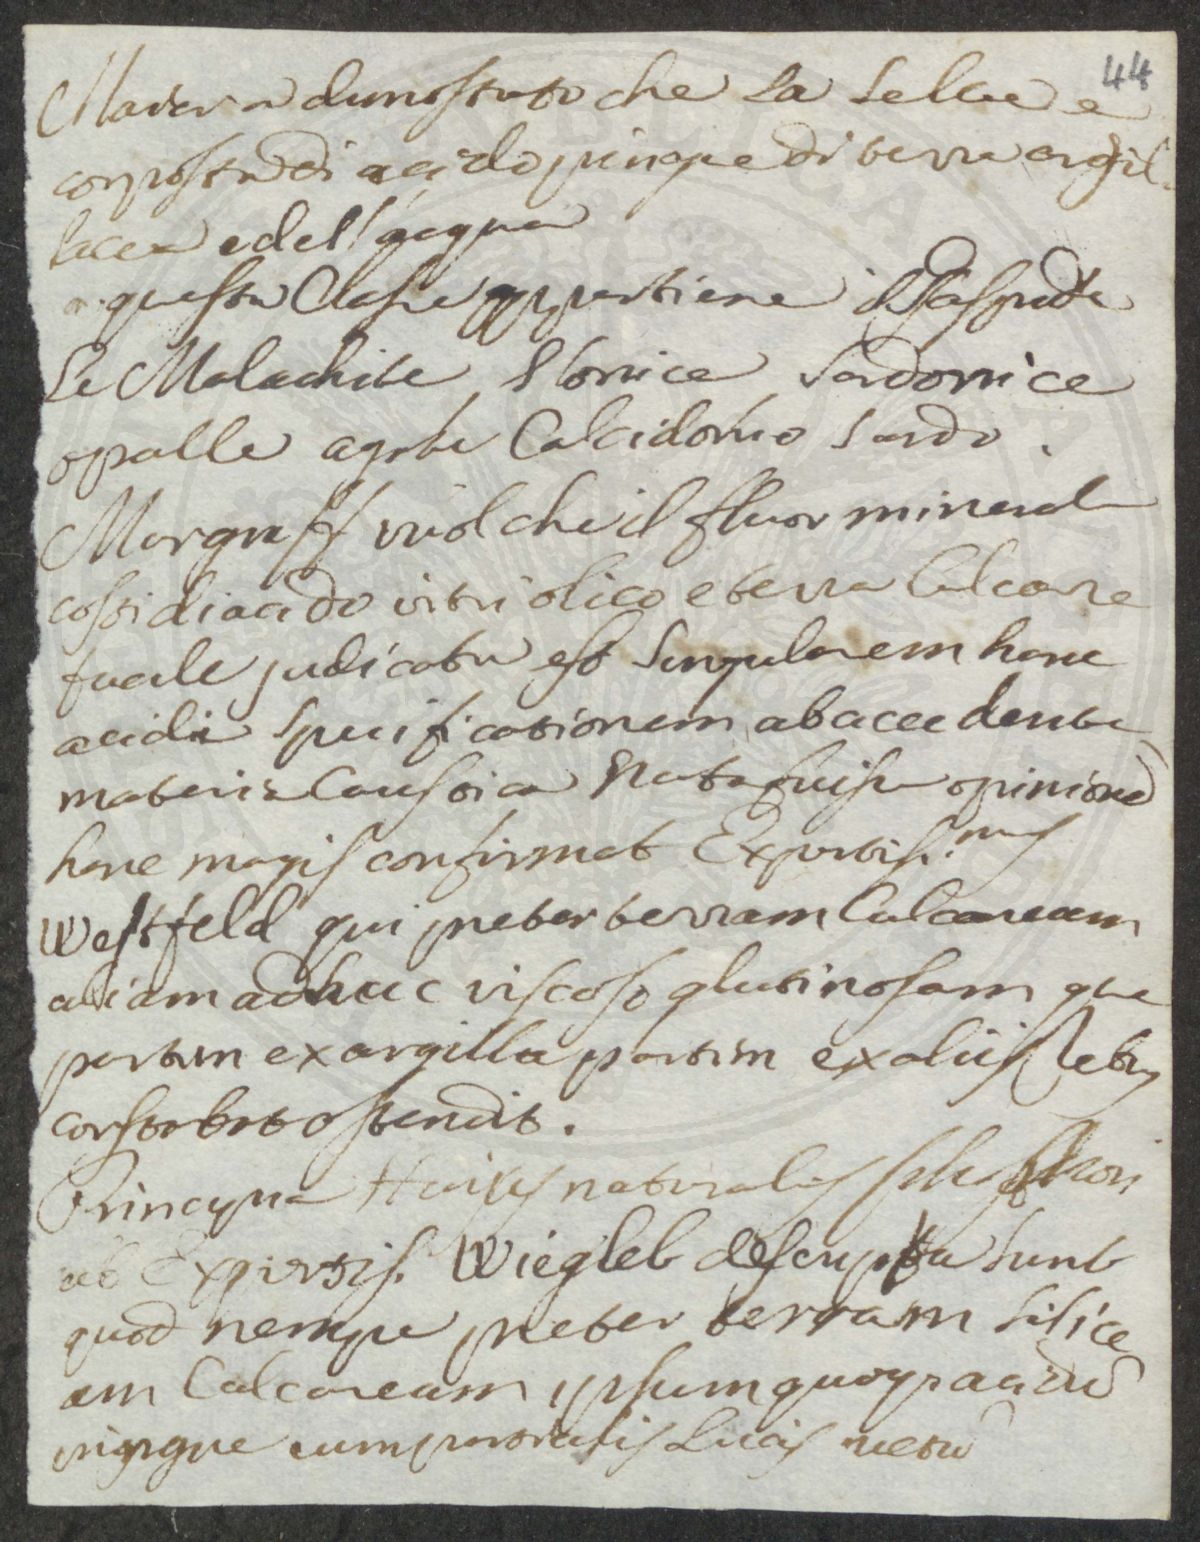 44
Maier a dimostrato che la Selce e
composta di acido pingue di terra argil-
lacea e dell'acqua
a questa Classe appartiene il Jaspide
Le Malachite l'onice Sardonice
opalle agate Calcidonio Sardo.
Margraff vuol che il fluor minerale
cossi di acido vitriolico e terra Calcarea
facile judicatu est Singularem hanc
acidi Specificationem ab accedente
materia Caustica Nata fuisse opinionẽ
hanc magis confirmat Expertiss.mus
Westfeld qui preter terram Calcaream
aliam adhuc viscoso glutinosam que
partim ex argilla partim ex aliis Rebus
constabat ostendit.
Principia Huius naturalis fluori
ab Expertis. Wiegleb descripta Sunt
quod nempe preter terram Silice
am Calcaream ipsum quoq acidũ
pingue cum particulis Lucis metu